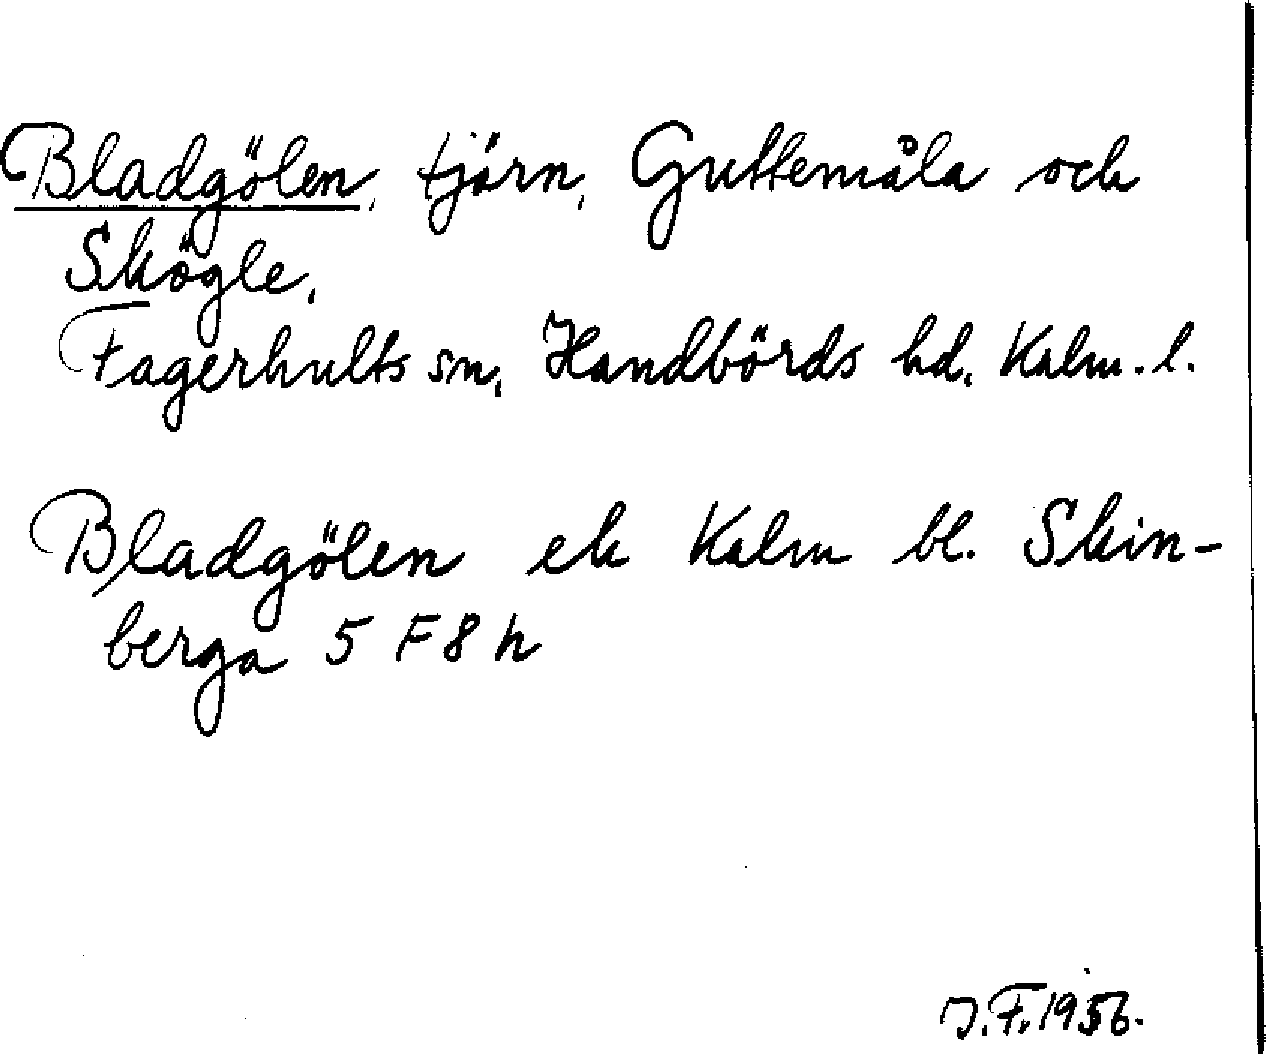 Bladgölen, tjärn, Guttemåla och
Skögle,
Fagerhults sn, Handbörds hd, Kalm. l.
Bladgölen ek Kalm bl. Skin-
berga 5 F 8 h
J. F. 1956.